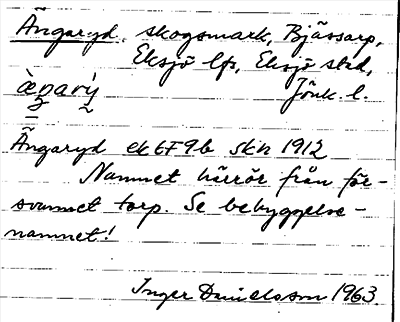 Ängaryd, skogsmark, Bjässarp,
Eksjö lfs, Eksjö stad,
Jönk. l.
Ängaryd ek 6F9b skn 1912
Namnet härrör från för-
svunnet torp. Se bebyggelse-
namnet!
Inger Danielsson 1963